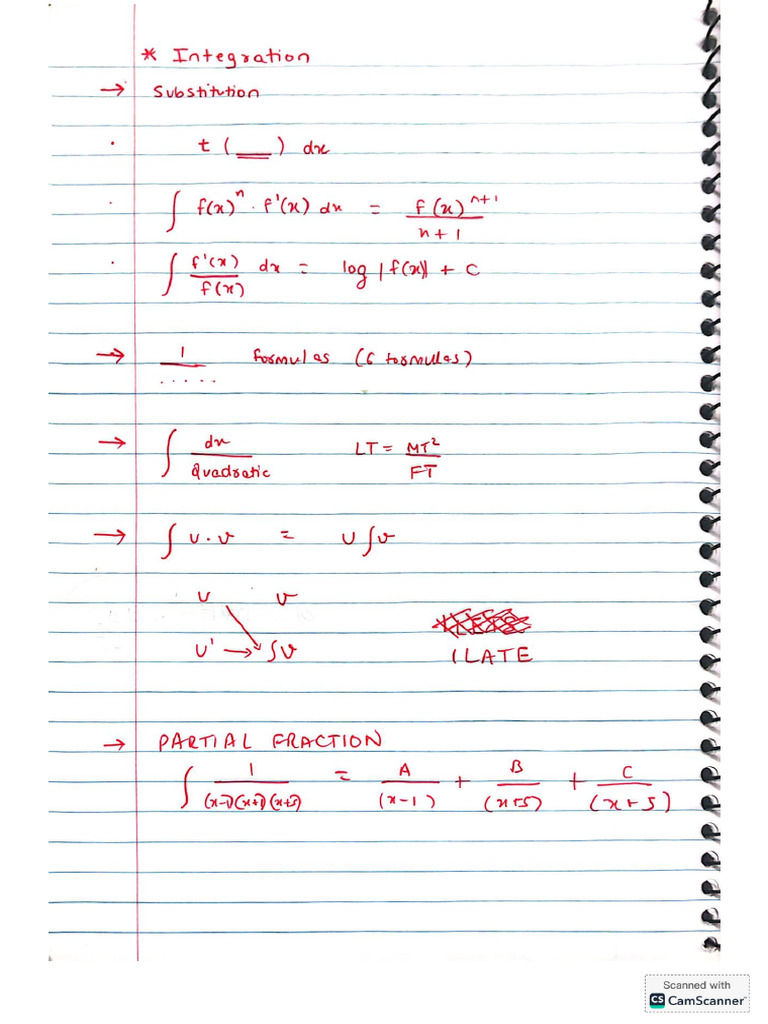 * Integration
→ Substitution
· t ( __ ) dx
· ∫ f(x)^n · f'(x) dx = f(x)^(n+1) / n+1
· ∫ f'(x) / f(x) dx = log |f(x)| + c
→ 1 / ..... formulas (6 formulas)
→ ∫ dx / Quadratic LT = MT² / FT
→ ∫ u·v = u ∫v
u v
u' → ∫v
ILATE
→ PARTIAL FRACTION
∫ 1 / (x-1)(x+1)(x+5) = A / (x-1) + B / (x+5) + C / (x+5)
Scanned with
CS CamScanner